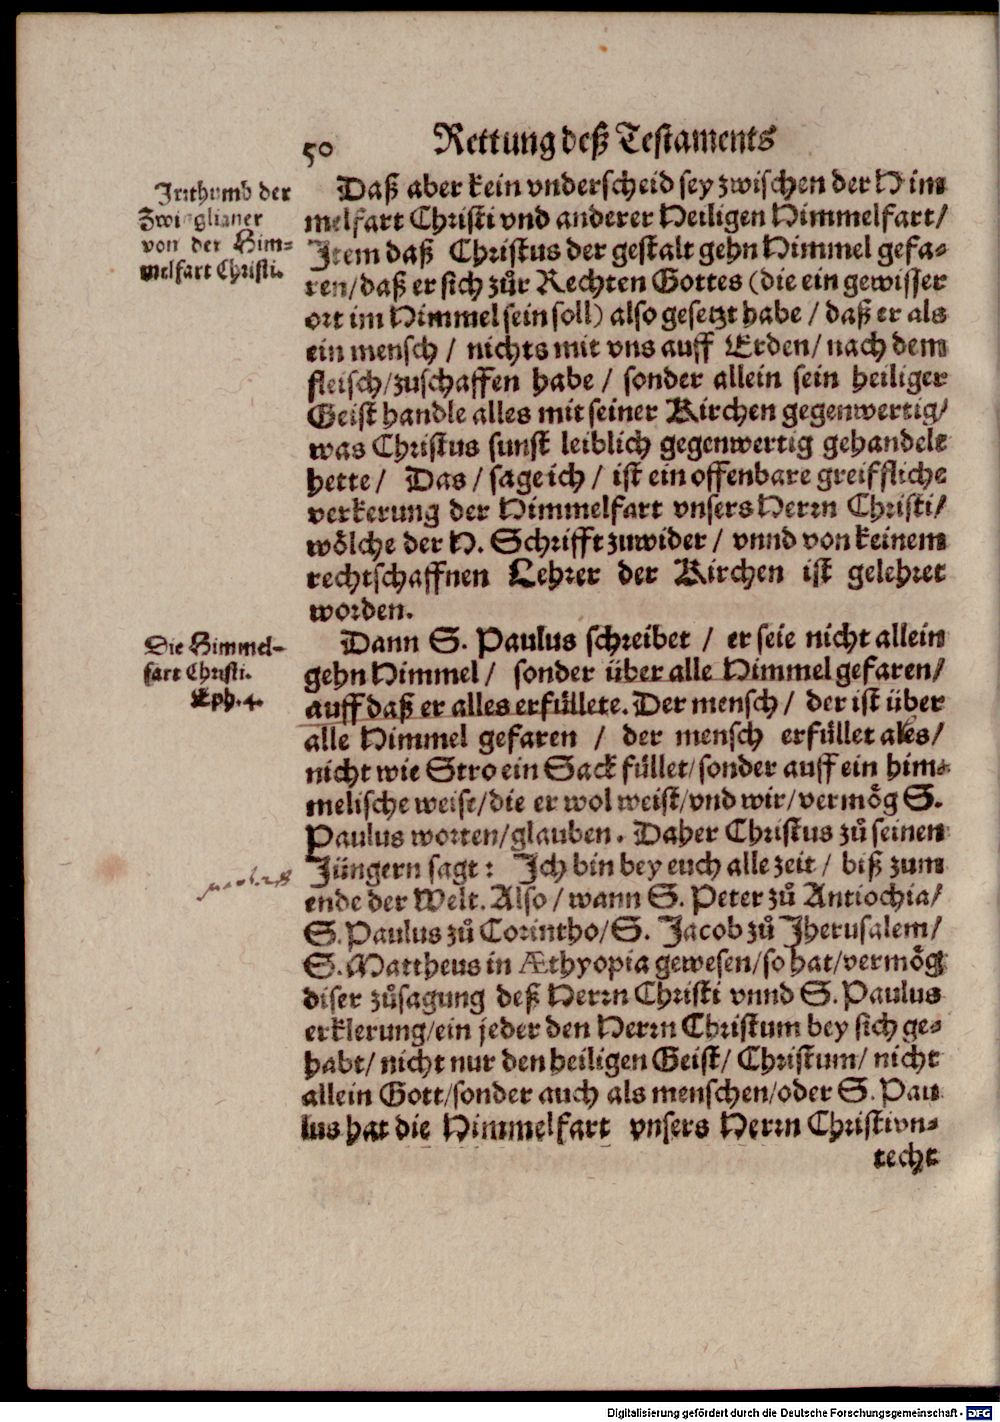 50 Rettung deß Testaments
Irrthumb der
Zwinglianer
von der Him-
melfart Christi.
Daß aber kein vnderscheid sey zwischen der Him
melfart Christi vnd anderer Heiligen Himmelfart/
Item daß Christus der gestalt gehn Himmel gefa-
ren/daß er sich zůr Rechten Gottes (die ein gewisser
ort im Himmel sein soll) also gesetzt habe / daß er als
ein mensch / nichts mit vns auff Erden/ nach dem
fleisch/zuschaffen habe / sonder allein sein heiliger
Geist handle alles mit seiner Kirchen gegenwertig/
was Christus sunst leiblich gegenwertig gehandelt
hette / Das / sage ich / ist ein offenbare greiffliche
verkerung der Himmelfart vnsers Herrn Christi/
wölche der H. Schrifft zuwider / vnnd von keinem
rechtschaffnen Lehrer der Kirchen ist gelehret
worden.
Die Himmel-
fart Christi.
Eph. 4.
Dann S. Paulus schreibet / er seie nicht allein
gehn Himmel / sonder über alle Himmel gefaren/
auff daß er alles erfüllete. Der mensch / der ist über
alle Himmel gefaren / der mensch erfüllet alles/
nicht wie Stro ein Sack füllet/sonder auff ein him-
melische weise/die er wol weist/vnd wir/vermög S.
Paulus worten/glauben. Daher Christus zů seinen
Jüngern sagt: Ich bin bey euch alle zeit / biß zum
ende der Welt. Also / wann S. Peter zů Antiochia/
S. Paulus zů Corintho/S. Jacob zů Jherusalem/
S. Mattheus in Æthyopia gewesen/so hat/vermög
diser zůsagung deß Herrn Christi vnnd S. Paulus
erklerung/ein jeder den Herrn Christum bey sich ge-
habt/ nicht nur den heiligen Geist/ Christum/ nicht
allein Gott/sonder auch als menschen/oder S. Pau
lus hat die Himmelfart vnsers Herrn Christi vn-
recht
Digitalisierung gefördert durch die Deutsche Forschungsgemeinschaft - DFG